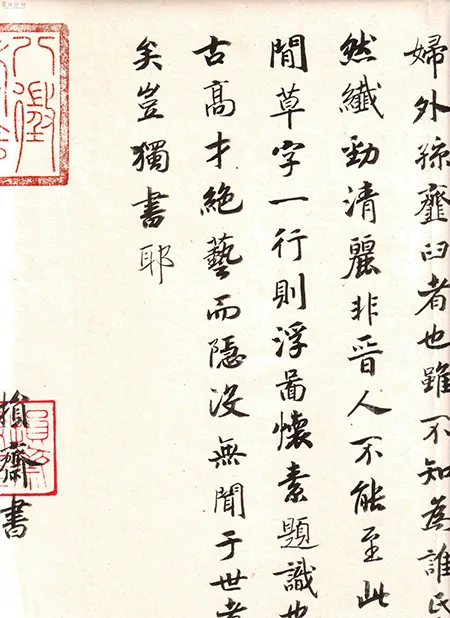 婦外孫虀臼者也雖不知為誰氏
然纖勁清麗非晉人不能至此
間草字一行則浮啚懷素題識也
古高才絕藝而隱沒無聞于世者
矣豈獨書耶
損齋書
損齋